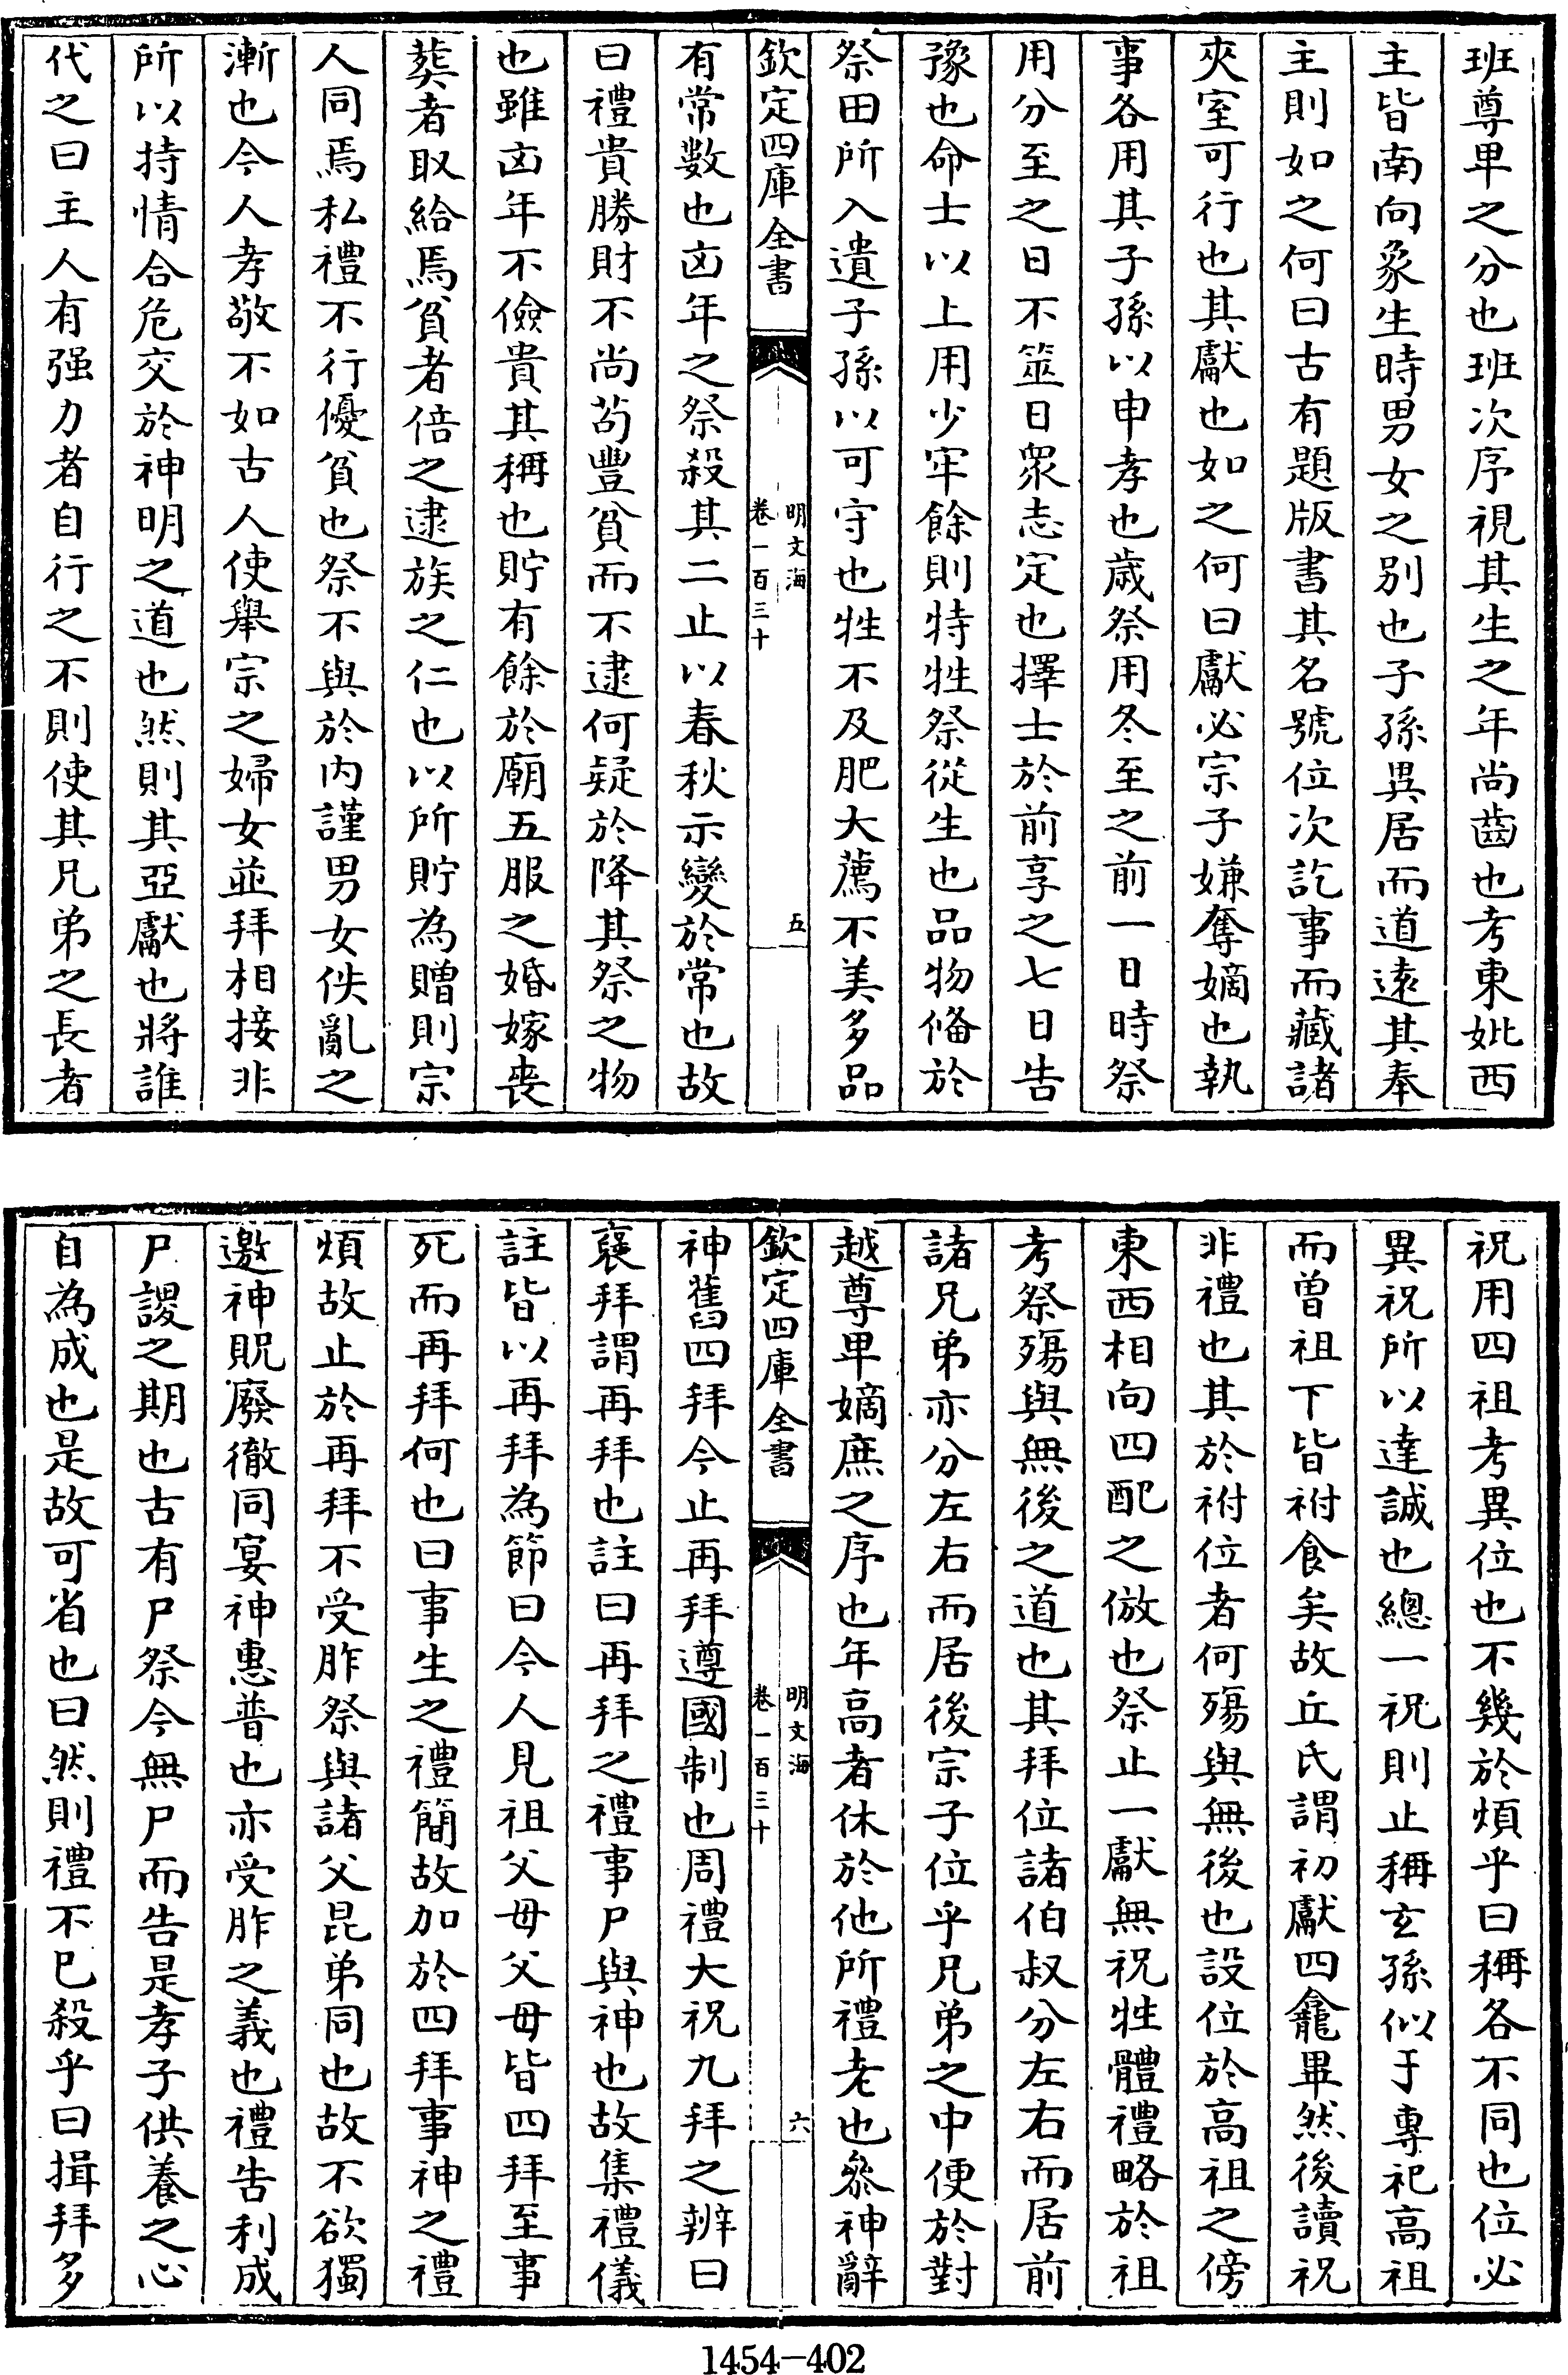 班尊卑之分也班次序視其生之年尚齒也考東妣西
主皆南向象生時男女之别也子孫異居而道遠其奉
主則如之何曰古有題版書其名號位次訖事而藏諸
夾室可行也其獻也如之何曰獻必宗子嫌奪嫡也執
事各用其子孫以申孝也歳祭用冬至之前一日時祭
用分至之日不筮日衆志定也擇士於前享之七日告
豫也命士以上用少牢餘則特牲祭從生也品物偹於
祭田所入遺子孫以可守也牲不及肥大薦不美多品
欽定四庫全書
明文海
卷一百三十
五
有常數也凶年之祭殺其二止以春秋示變於常也故
曰禮貴勝財不尚苟豐貧而不逮何疑於降其祭之物
也雖凶年不儉貴其稱也貯有餘於廟五服之婚嫁丧
葬者取給焉貧者倍之逮族之仁也以所貯為贈則宗
人同焉私禮不行優貧也祭不與於内謹男女佚亂之
漸也今人孝敬不如古人使舉宗之婦女並拜相接非
所以持情合危交於神明之道也然則其亞獻也將誰
代之曰主人有强力者自行之不則使其兄弟之長者
祝用四祖考異位也不幾於煩乎曰稱各不同也位必
異祝所以達誠也總一祝則止稱玄孫似于專祀高祖
而曽祖下皆祔食矣故丘氏謂初獻四龕畢然後讀祝
非禮也其於祔位者何殤與無後也設位於高祖之傍
東西相向四配之倣也祭止一獻無祝牲體禮略於祖
考祭殤與無後之道也其拜位諸伯叔分左右而居前
諸兄弟亦分左右而居後宗子位乎兄弟之中便於對
越尊卑嫡庶之序也年高者休於他所禮老也參神辭
欽定四庫全書
明文海
卷一百三十
六
神舊四拜今止再拜遵國制也周禮大祝九拜之辨曰
襃拜謂再拜也註曰再拜之禮事尸與神也故集禮儀
註皆以再拜為節曰今人見祖父母父母皆四拜至事
死而再拜何也曰事生之禮簡故加於四拜事神之禮
煩故止於再拜不受胙祭與諸父昆弟同也故不欲獨
邀神貺廢徹同宴神惠普也亦受胙之義也禮告利成
尸謖之期也古有尸祭今無尸而告是孝子供養之心
自為成也是故可省也曰然則禮不已殺乎曰揖拜多
1454—402